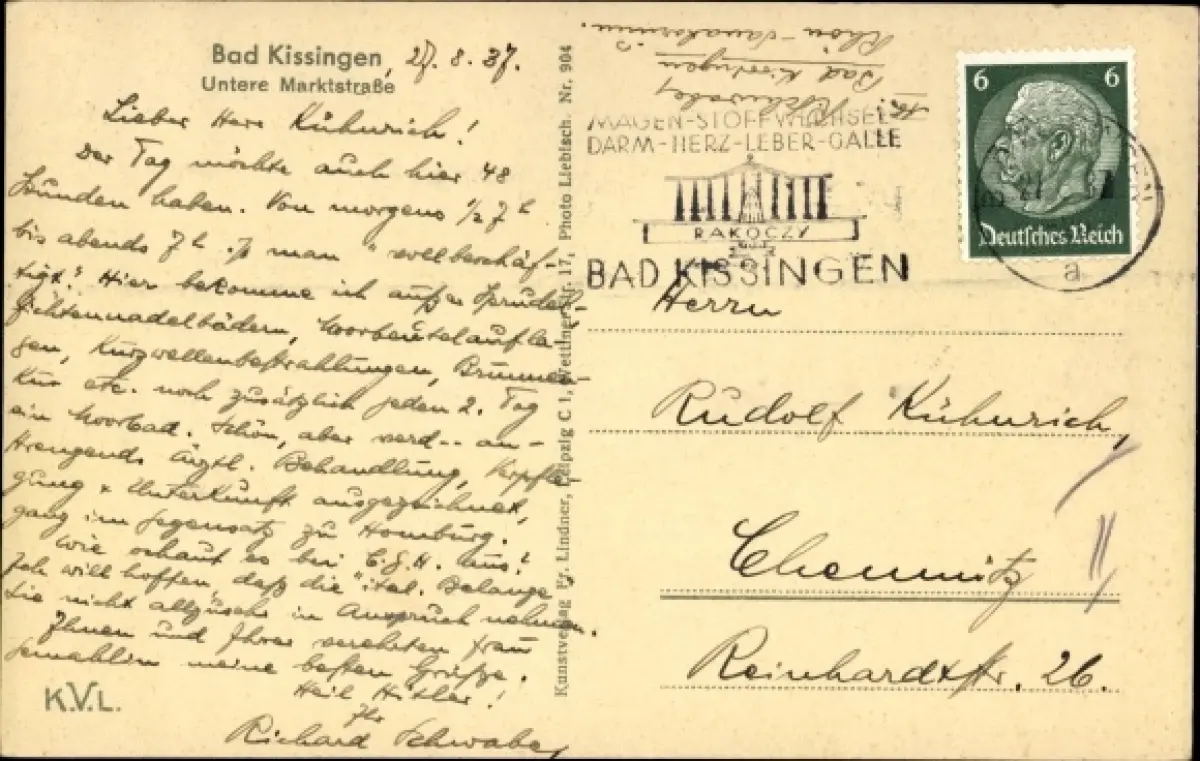 Bad Kissingen, 27.8.37.
Untere Marktstraße
Lieber Herr Kühnrich!
Der Tag möchte auch hier 48
Stunden haben. Von morgens ½ 7 h
bis abends 7 h ist man "vollbeschäf-
tigt". Hier bekomme ich außer Sprudel-,
Fichtennadelbädern, Moorbeutelaufla-
gen, Kurzwellenbestrahlungen, Brunnen-
Kur etc. noch zusätzlich jeden 2. Tag
ein Moorbad. Schön, aber verd-- an-
strengend. Ärztl. Behandlung, Verpfle-
gung + Unterkunft ausgezeichnet,
ganz im Gegensatz zu Homburg.
Wie schaut es bei C.G.H. aus?
Ich will hoffen, daß die "ital. Belange"
Sie nicht allzusehr in Anspruch nehmen.
Ihnen und Ihrer verehrten Frau
Gemahlin meine besten Grüße.
Heil Hitler!
Ihr
Richard Schwabe
K.V.L.
Kunstverlag Fr. Lindner, Leipzig C 1, Wettiner Str. 17, Photo Liebisch. Nr. 904
Schwabe,
Bad Kissingen
Rhön-Sanatorium.
MAGEN-STOFFWECHSEL
DARM-HERZ-LEBER-GALLE
RAKOCZY
BAD KISSINGEN
6 6
Deutsches Reich
a
Herrn
Rudolf Kühnrich,
Chemnitz
Reinhardtstr. 26.